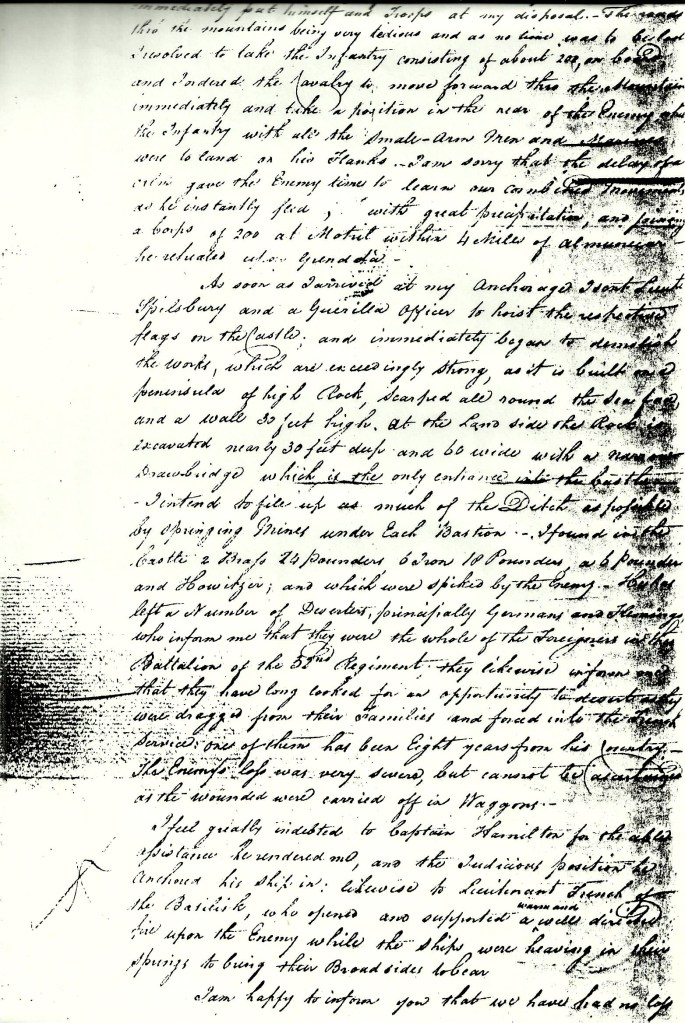 immediately put himself and Troops at my disposal.- The roads
thro' the mountains being very tedious and as no time was to be lost
I resolved to take the Infantry consisting of about 200, on board
and I ordered the Cavalry to move forward thro the Mountain
immediately and take a position in the rear of the Enemy
the Infantry with all the Small-Arm Men and Marines
were to land on his Flanks.- I am sorry that the delay of a
gave the Enemy time to learn our combined movements
as he instantly fled, with great precipitation, and joining
a Corps of 200 at Motril within 4 Miles of Almunecar-
he retreated upon Grenada.-
As soon as I arrived at my Anchorage I sent Lieut
Spilsbury and a Guerilla Officer to hoist the respective
flags on the Castle; and immediately began to demolish
the works, which are exceedingly strong, as it is built on a
peninsula of high Rock, scarped all round the sea face,
and a wall 30 feet high. At the Land side the Rock is
excavated nearly 30 feet deep and 60 wide with a narrow
Drawbridge which is the only entrance into the Castle-
- I intend to fill up as much of the Ditch as possible
by springing Mines under Each Bastion.- I found in the
Castle 2 Brass 24 pounders, 6 Iron 18 Pounders, a 6 Pounder
and Howitzer; and which were spiked by the Enemy.- He has
left a Number of Deserters, principally Germans and Flemings
who inform me that they were the whole of the Foreigners in this
Battalion of the 32nd Regiment; they likewise inform me
that they have long looked for an opportunity to desert as they
were dragged from their Families and forced into the French
Service; one of them has been Eight years from his Country.-
The Enemy's loss was very severe, but cannot be ascertained
as the wounded were carried off in Waggons.-
I feel greatly indebted to Captain Hamilton for the able
assistance he rendered me, and the Judicious position he
Anchored his Ship in: likewise to Lieutenant French of
the Basilisk, who opened and supported a warm and well directed
fire upon the Enemy while the Ships were heaving in their
springs to bring their Broadsides to bear
I am happy to inform you that we have had no loss